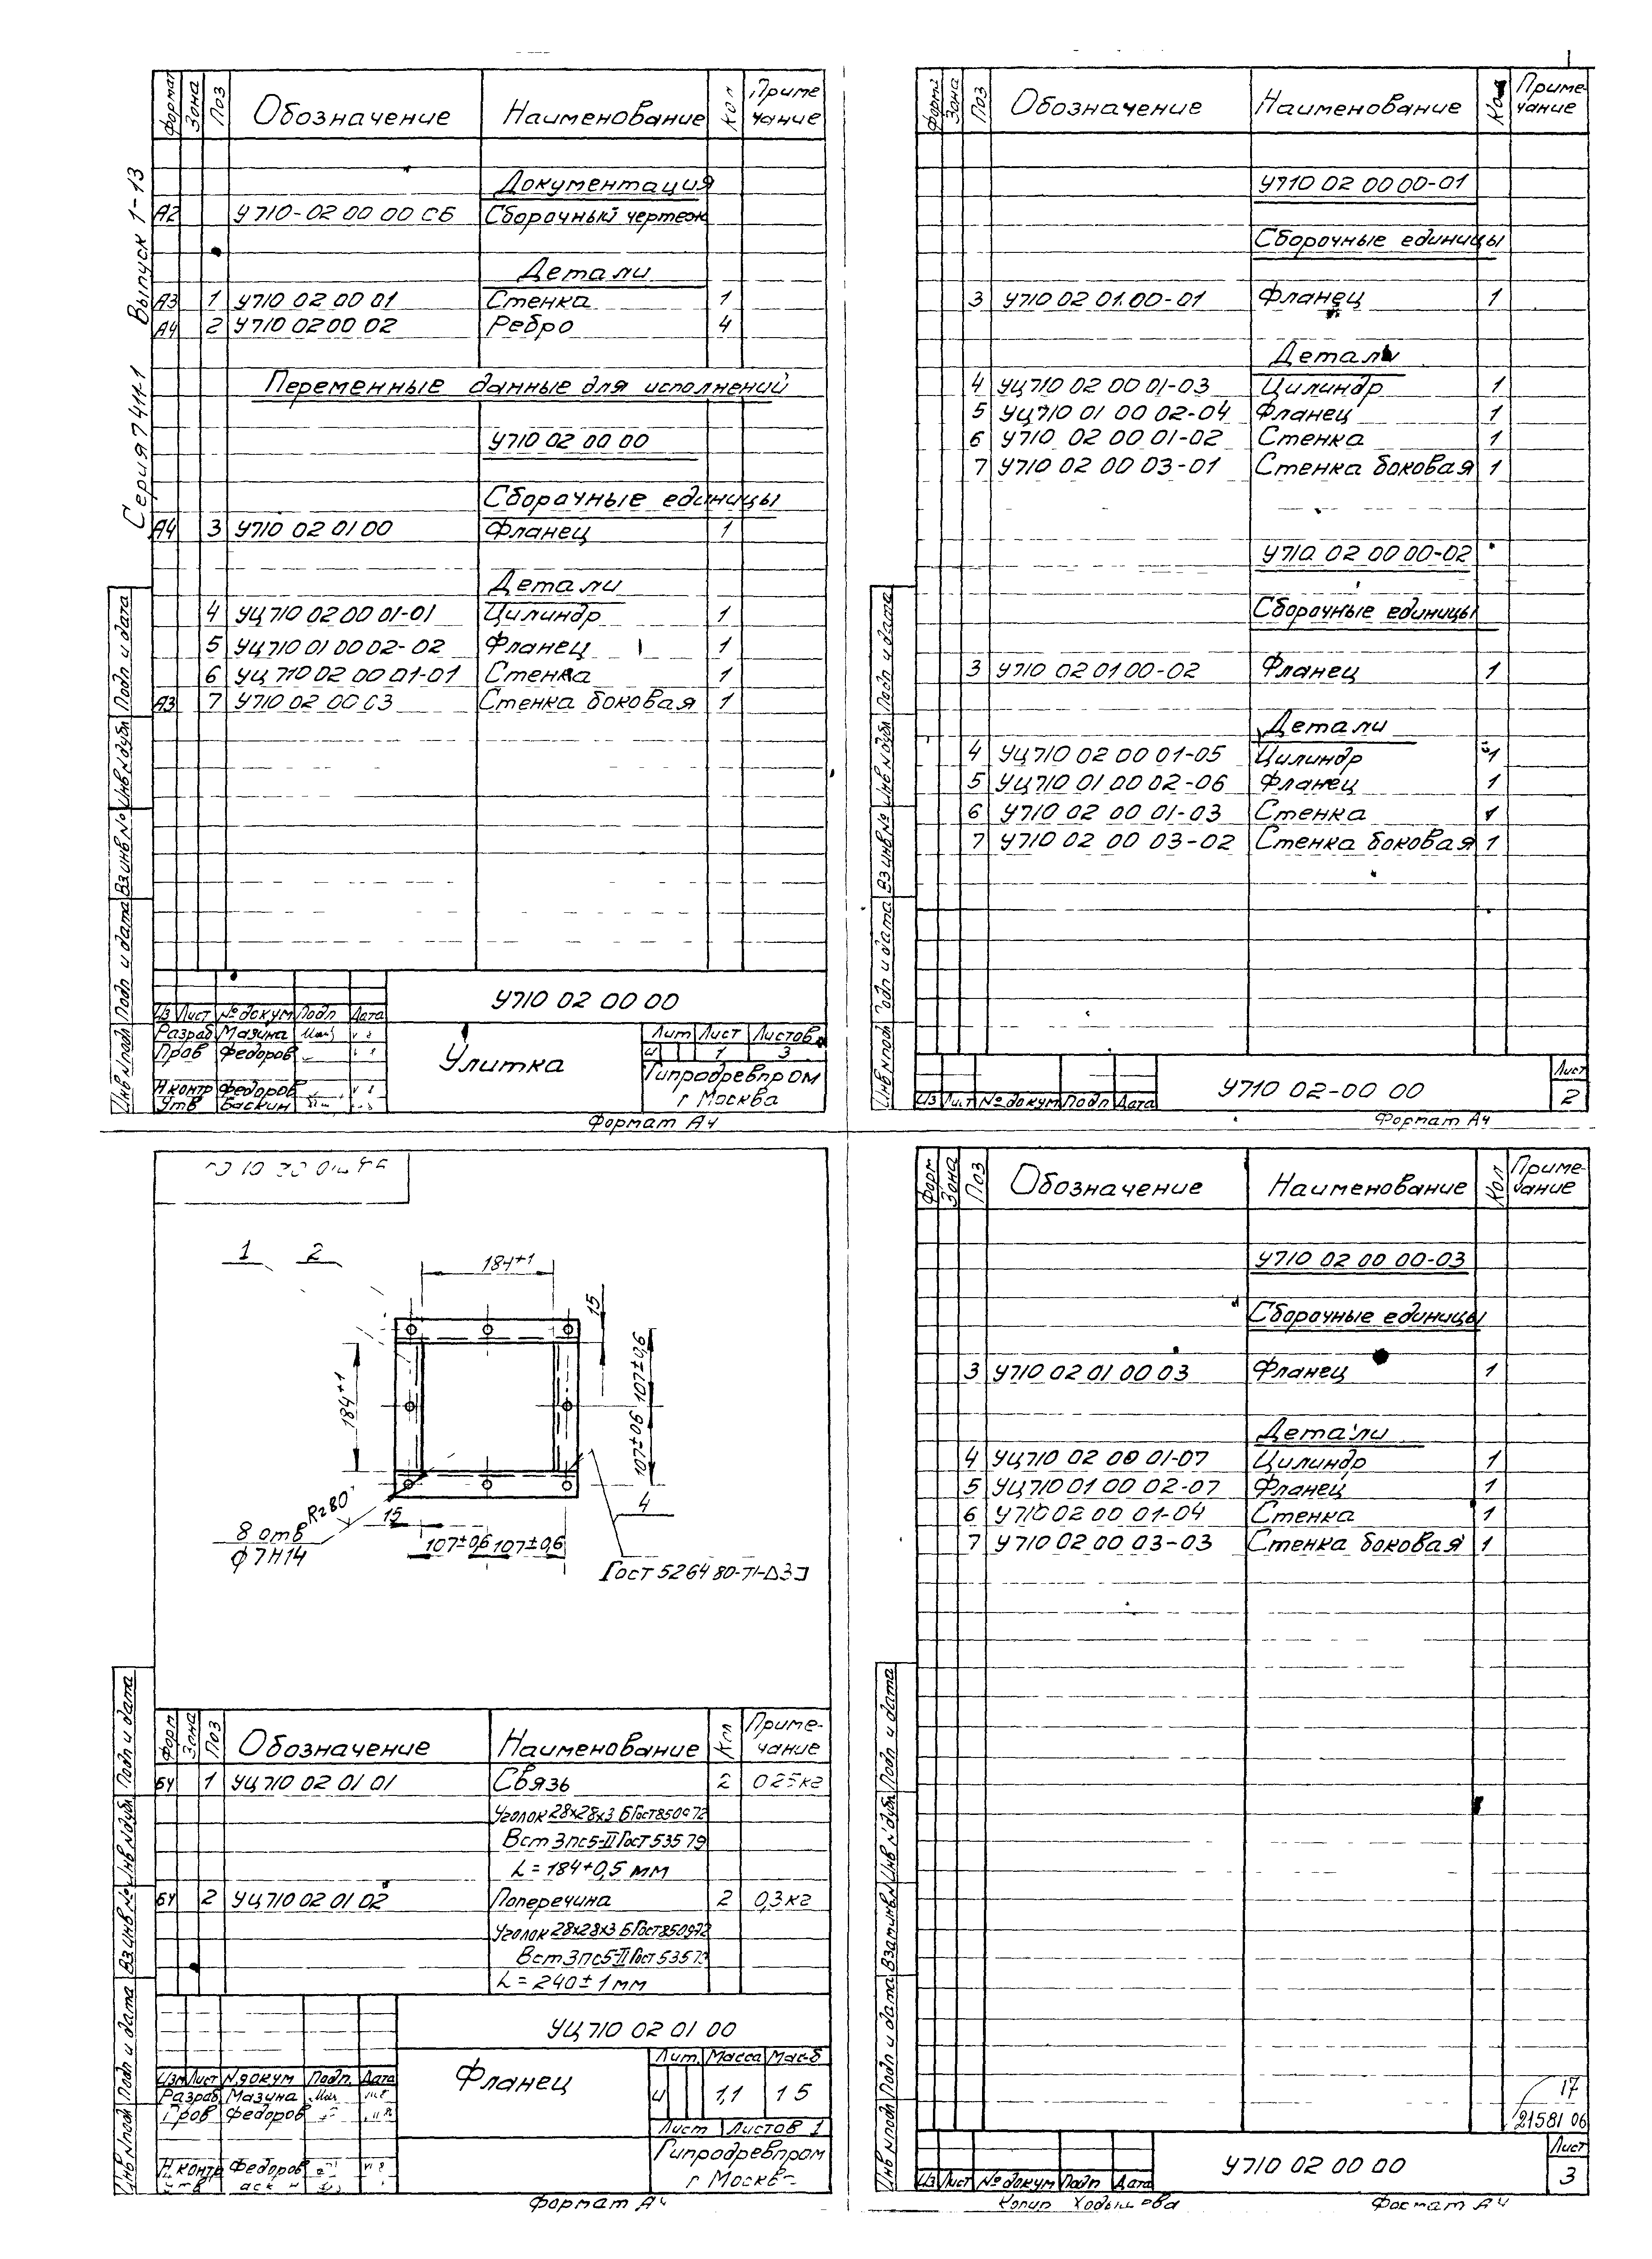 Серия 7 411-1 Выпуск 1-13
Формат Зона Поз Обозначение Наименование Кол Примечание
Документация
А2 У710-02 00 00 СБ Сборочный чертеж
Детали
А3 1 У710 02 00 01 Стенка 1
А4 2 У710 02 00 02 Ребро 4
Переменные данные для исполнений
У710 02 00 00
Сборочные единицы
А4 3 У710 02 01 00 Фланец 1
Детали
4 УЦ710 02 00 01-01 Цилиндр 1
5 УЦ710 01 00 02-02 Фланец 1
6 УЦ 710 02 00 01-01 Стенка 1
А3 7 У710 02 00 03 Стенка боковая 1
Инв N подл Подп и дата Вз инв № Инв N дубл Подп и дата
У710 02 00 00
Из Лист № докум Подп Дата
Разраб Мазина
Пров Федоров
Н контр Федоров
Утв Баскин
Улитка
Лит Лист Листов
и 1 3
Гипродревпром
г Москва
Формат А4
Форм Зона Поз Обозначение Наименование Кол Примечание
У710 02 00 00-01
Сборочные единицы
3 У710 02 01.00-01 Фланец 1
Детали
4 УЦ710 02 00 01-03 Цилиндр 1
5 УЦ710 01 00 02-04 Фланец 1
6 У710 02 00 01-02 Стенка 1
7 У710 02 00 03-01 Стенка боковая 1
У710 02 00 00-02
Сборочные единицы
3 У710 02 01 00-02 Фланец 1
Детали
4 УЦ710 02 00 01-05 Цилиндр 1
5 УЦ710 01 00 02-06 Фланец 1
6 У710 02 00 01-03 Стенка 1
7 У710 02 00 03-02 Стенка боковая 1
Инв N подл Подп и дата Вз инв № Инв N дубл Подп и дата
Из Лист № докум Подп Дата
У710 02-00 00
Лист
2
Формат А4
1 2
184+1
15
107±0,6
107±0,6
184+1
Rz80
8 отв
ϕ7H14
15
107±0,6 107±0,6
4
Гост 5264 80-Т1-
Форм Зона Поз Обозначение Наименование Кол Примечание
БЧ 1 УЦ710 02 01 01 Связь 2 0 25 кг
Уголок 28х28х3 Б Гост 8509 72
Вст 3пс5-II Гост 535 79
L = 184+0,5 мм
БЧ 2 УЦ710 02 01 02 Поперечина 2 0,3 кг
Уголок 28х28х3 Б Гост 8509 72
Вст 3пс5-II Гост 535 79
L = 240±1 мм
Инв N подл Подп и дата Вз инв № Инв N дубл Подп и дата
УЦ710 02 01 00
Изм Лист N докум Подп. Дата
Разраб Мазина
Пров Федоров
Н контр Федоров
Фланец
Лит. Масса Масб
и 1,1 1 5
Лист Листов 1
Гипродревпром
г Москва
Формат А4
Форм Зона Поз Обозначение Наименование Кол Примечание
У710 02 00 00-03
Сборочные единицы
3 У710 02 01 00 03 Фланец 1
Детали
4 УЦ710 02 00 01-07 Цилиндр 1
5 УЦ710 01 00 02-07 Фланец 1
6 У710 02 00 01-04 Стенка 1
7 У710 02 00 03-03 Стенка боковая 1
Инв N подл Подп и дата Взам инв N Инв N дубл Подп и дата
17
21581 06
Из Лист № докум Подп Дата
У710 02 00 00
Лист
3
Копир Формат А4